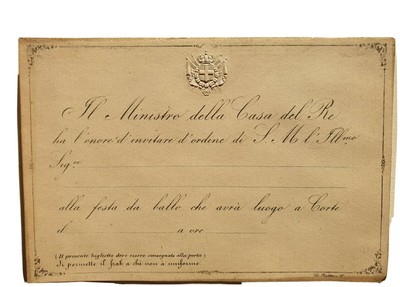 Il Ministro della Casa del Re
ha l'onore d'invitare d'ordine di S. M. l'Ill.mo
Sig.re
alla festa da ballo che avrà luogo a Corte
il a ore
(Il presente biglietto deve essere consegnato alla porta)
Si permette il frak a chi non à uniforme